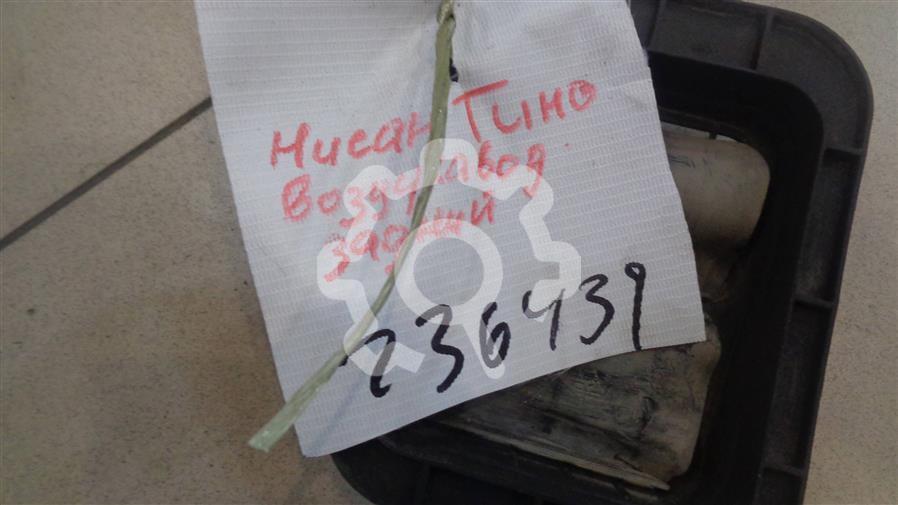 Нисан Тино
Воздухавод
задний
236439